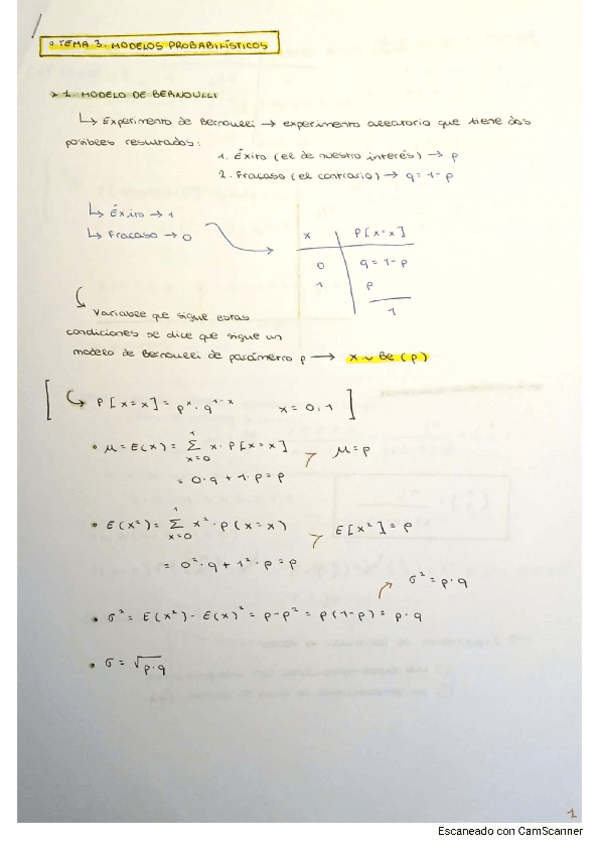 • TEMA 3. MODELOS PROBABILÍSTICOS
> 1. MODELO DE BERNOULLI
↳ Experimento de Bernoulli → experimento aleatorio que tiene dos
posibles resultados:
1. Éxito (el de nuestro interés) → p
2. Fracaso (el contrario) → q = 1-p
↳ Éxito → 1
↳ Fracaso → 0
x P[X=x]
0 q = 1-p
1 p
1
Variable que sigue estas
condiciones se dice que sigue un
modelo de Bernoulli de parámetro p → X ~ Be (p)
[ ↳ P[X=x] = pˣ · q¹⁻ˣ x = 0,1 ]
• μ = E(X) = Σ_{x=0}^{1} x · P[X=x] → μ = p
= 0·q + 1·p = p
• E(X²) = Σ_{x=0}^{1} x² · P(X=x) → E[X²] = p
= 0²·q + 1²·p = p
σ² = p·q
• σ² = E(X²) - E(X)² = p-p² = p(1-p) = p·q
• σ = √p·q
1
Escaneado con CamScanner